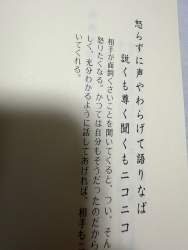 怒らずに声やわらげて語りなば
説くも尊く聞くもニコニコ
相手が面倒くさいことを聞いてくると、つい、そん
怒りたくなる。かつては自分もそうだったのだから
しく、充分わかるように話してあげれば、相手もニ
いてくれる。